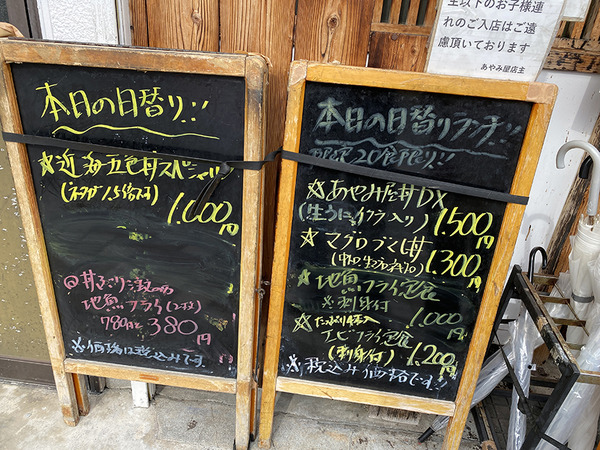 本日の日替り!!
☆近海五色丼スペシャル
(ネタが1.5倍です)
1.000円
◎丼ぶりご注文の方
地魚フライ(2枚)
780円を380円
※価格は税込みです。
本日の日替りランチ!!
限定20食限り!!
☆あやみ屋丼DX
(生うに、イクラ入り)1.500円
☆マグロづくし丼
1.300円
☆地魚フライ定食
※刺身付
1.000円
☆たっぷり4本入
エビフライ定食
(刺身付)1.200円
☆税込み価格です!!
生以下のお子様連
れのご入店はご遠
慮頂いております
あやみ屋店主